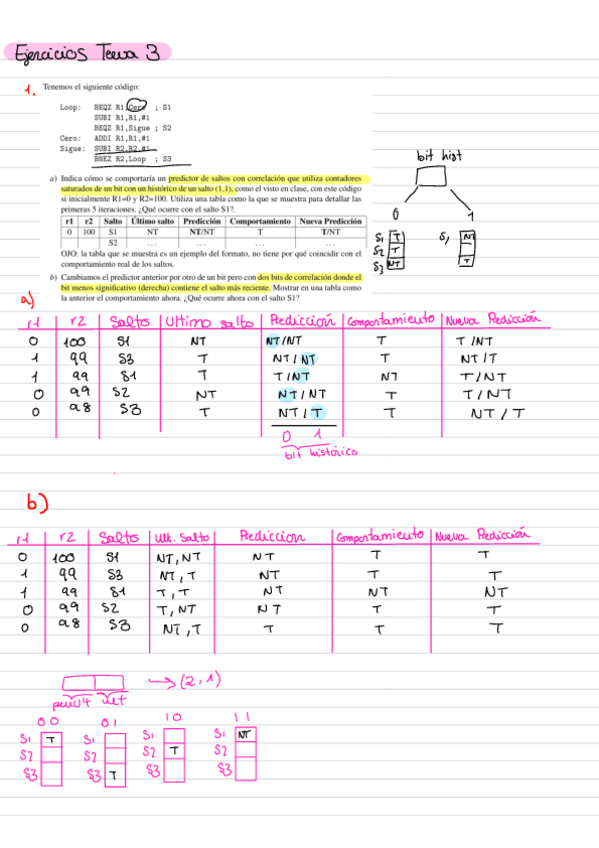 Ejercicios Tema 3
1. Tenemos el siguiente código:
Loop: BEQZ R1,Cero ; S1
SUBI R1,R1,#1
BEQZ R1,Sigue ; S2
Cero: ADDI R1,R1,#1
Sigue: SUBI R2,R2,#1
BNEZ R2,Loop ; S3
a) Indica cómo se comportaría un predictor de saltos con correlación que utiliza contadores
saturados de un bit con un histórico de un salto (1,1), como el visto en clase, con este código
si inicialmente R1=0 y R2=100. Utiliza una tabla como la que se muestra para detallar las
primeras 5 iteraciones. ¿Qué ocurre con el salto S1?.
r1 r2 Salto Último salto Predicción Comportamiento Nueva Predicción
0 100 S1 NT NT/NT T T/NT
S2 ... ... ... ...
OJO: la tabla que se muestra es un ejemplo del formato, no tiene por qué coincidir con el
comportamiento real de los saltos.
b) Cambiamos el predictor anterior por otro de un bit pero con dos bits de correlación donde el
bit menos significativo (derecha) contiene el salto más reciente. Mostrar en una tabla como
la anterior el comportamiento ahora. ¿Qué ocurre ahora con el salto S1?
bit hist
0 1
S1 T S1 NT
S2 T
S3 NT T
a)
r1 r2 Salto Ultimo salto Predicción Comportamiento Nueva Predicción
0 100 S1 NT NT/NT T T/NT
1 99 S3 T NT/NT T NT/T
1 99 S1 T T/NT NT T/NT
0 99 S2 NT NT/NT T T/NT
0 98 S3 T NT/T T NT/T
0 1
bit histórico
b)
r1 r2 Salto Ult. Salto Prediccion Comportamiento Nueva Predicción
0 100 S1 NT,NT NT T T
1 99 S3 NT,T NT T T
1 99 S1 T,T NT NT NT
0 99 S2 T,NT NT T T
0 98 S3 NT,T T T T
→(2,1)
00 01 10 11
S1 T S1 S1 S1 NT
S2 S2 S2 T S2
S3 S3 T S3 S3